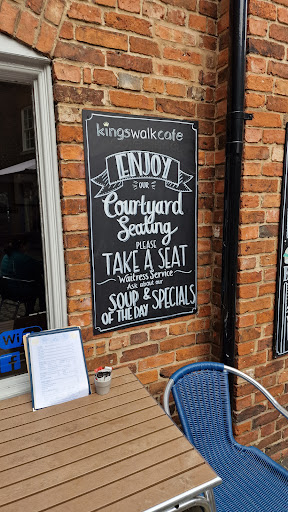 kingswalkcafe
ENJOY
OUR
Courtyard
Seating
PLEASE
TAKE A SEAT
Waitress Service
Ask about our
SOUP & SPECIALS
OF THE DAY
Wi